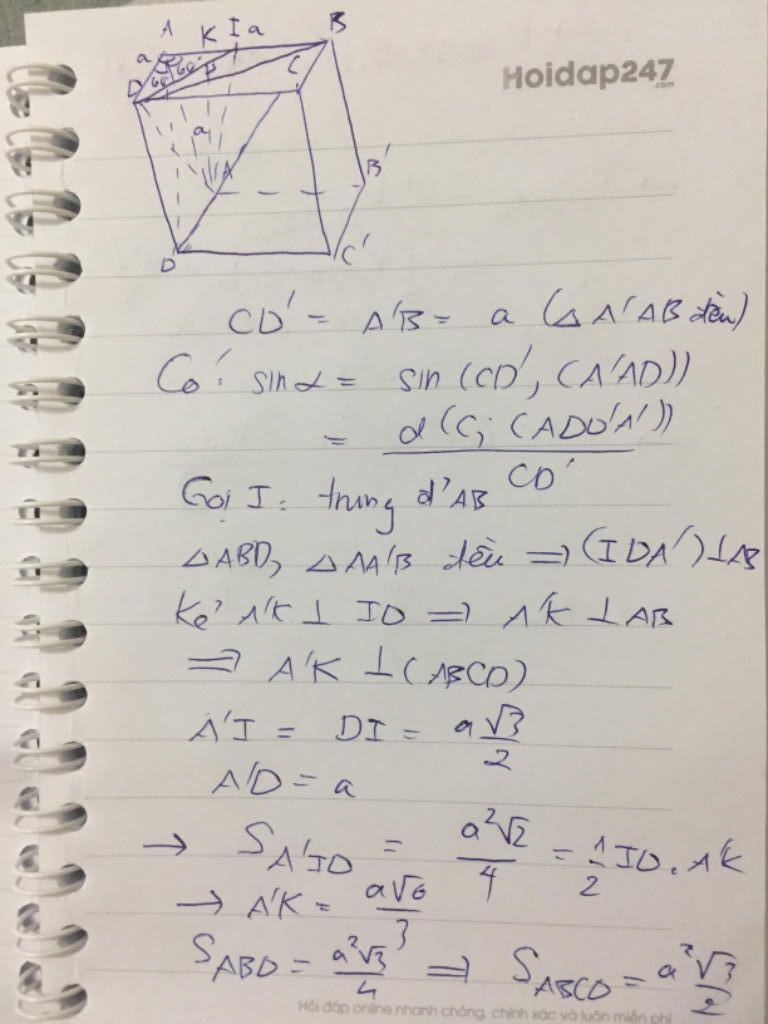 A K I a B
a 60° 60° H C
D
a
A B'
D C'
Hoidap247
.com
CD' = A'B = a (Δ A'AB đều)
Có: sin α = sin (CD', (A'AD))
= d(C; (ADD'A')) / CD'
Gọi I: trung đ' AB
Δ ABD, Δ AA'B đều ⇒ (IDA') ⊥ AB
Kẻ A'K ⊥ ID ⇒ A'K ⊥ AB
⇒ A'K ⊥ (ABCD)
A'I = DI = a√3/2
A'D = a
→ S A'ID = a²√2/4 = 1/2 ID. A'K
→ A'K = a√6/3
S ABD = a²√3/4 ⇒ S ABCD = a²√3/2
Hỏi đáp online nhanh chóng, chính xác và luôn miễn phí